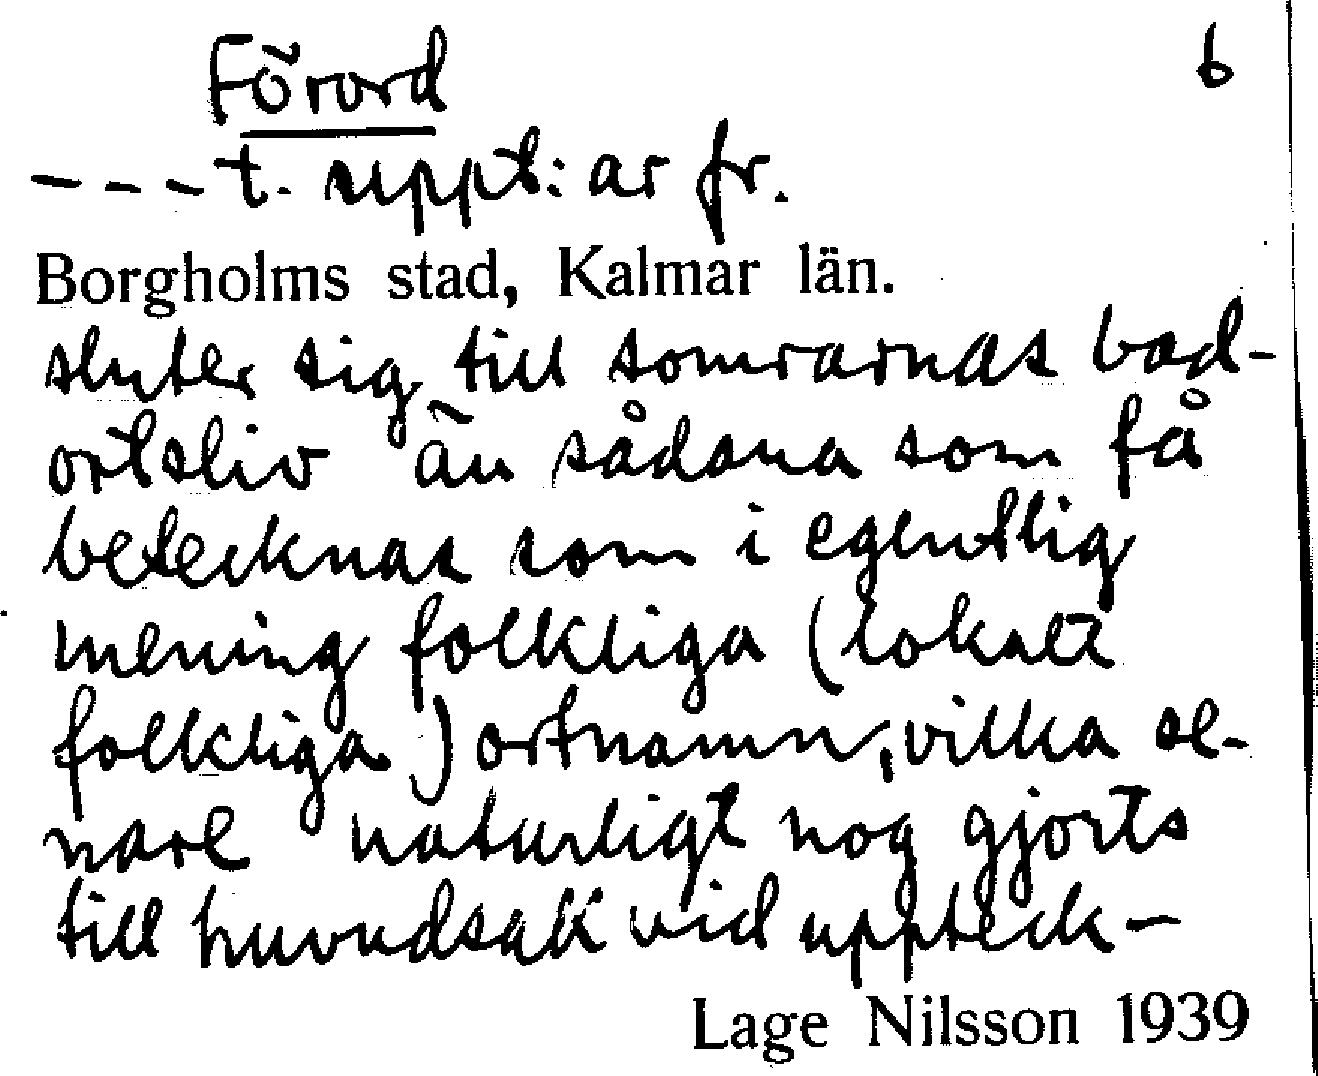 Förord 6
---t. uppt:ar fr.
Borgholms stad, Kalmar län.
sluter sig till somrarnas bad-
ortsliv än sådana som få
betecknas som i egentlig
mening folkliga (lokalt
folkliga) ortnamn, vilka se-
nare naturligt nog gjorts
till huvudsak vid uppteck-
Lage Nilsson 1939